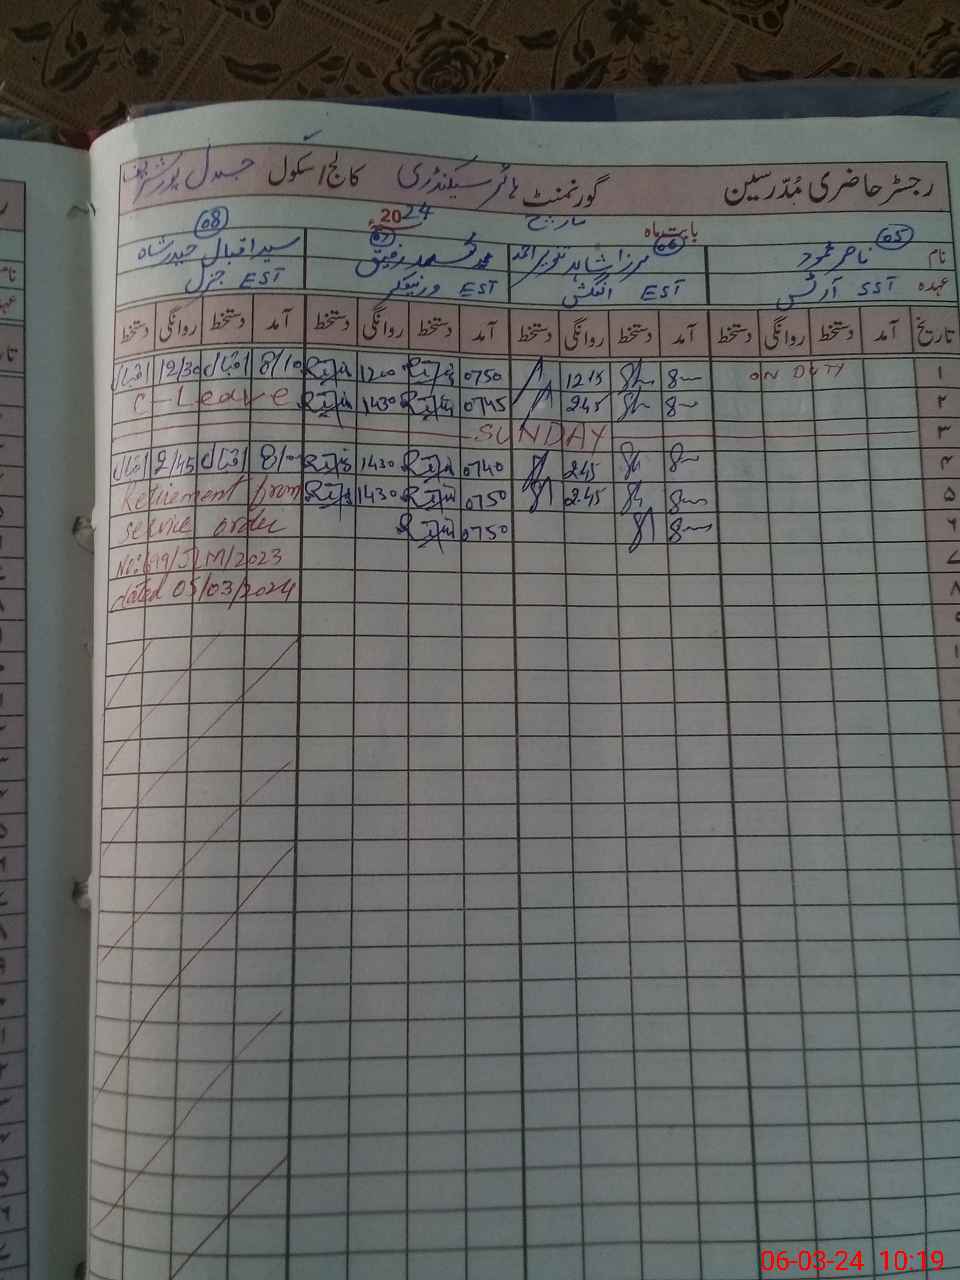 رجسٹر حاضری مُدرّسین گورنمنٹ ہائر سیکنڈری کالج/سکول جلال پور شریف
بابت ماہ مارچ 2024ء
نام 05 ناصر محمود 06 مرزا شاہد تنویر احمد 07 محمد رفیق 08 سید اقبال حیدر شاہ
عہدہ SST آرٹس EST انگلش EST ورنیکلر EST جنرل
تاریخ آمد دستخط روانگی دستخط آمد دستخط روانگی دستخط آمد دستخط روانگی دستخط آمد دستخط روانگی دستخط
۱ ON DUTY 8 1215 0750 1200 8/10 اقبال 12/30 اقبال
۲ 8 245 0745 1430 C-Leave
۳ SUNDAY
۴ 8 245 0740 1430 8/00 اقبال 2/45 اقبال
۵ 8 245 0750 1430 Retirement from
۶ 8 0750 service order
۷ No: 699/JLM/2023
۸ dated 05/03/2024
06-03-24 10:19